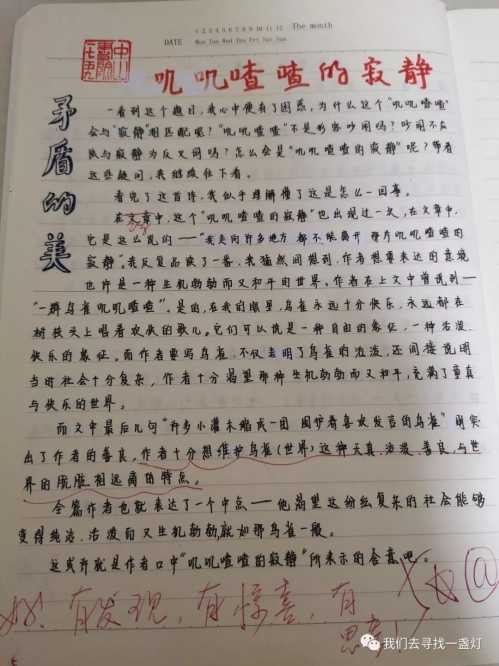 1 2 3 4 5 6 7 8 9 10 11 12 The month
DATE Mon Tue Wed Thu Fri Sat Sun
中山
书院
七五九
叽叽喳喳的寂静
矛盾的美
一看到这个题目,我心中便有了困惑,为什么这个"叽叽喳喳"
会与"寂静"相匹配呢?"叽叽喳喳"不是形容吵闹吗?吵闹不应
该与寂静为反义词吗?怎么会是"叽叽喳喳的寂静"呢?带着
这些疑问,我继续往下看。
看完了这首诗,我似乎理解懂了这是怎么一回事。
在文章中,这个"叽叽喳喳的寂静"也出现过一次,在文章中,
它是这么说的——"我走向许多地方 都不能离开 那片叽叽喳喳的
寂静"。我反复品读了一番,我猛然间想到,作者想要表达的意境
也许是一种生机勃勃而又和平的世界。作者在上文中曾说到—
"一群乌雀叽叽喳喳",是的,在我们眼里,乌雀永远十分快乐,永远都在
树枝头上唱着欢快的歌儿。它们可以说是一种自由的象征,一种活泼、
快乐的象征。而作者要写乌雀,不仅表明了乌雀的活泼,还间接说明
当时社会十分复杂,作者十分渴望那种生机勃勃而又和平,充满了童真
与快乐的世界。
而文中最后几句"许多小灌木缩成一团 围护着喜欢发言的乌雀"则突
出了作者的善良,作者十分想维护乌雀(世界)这种天真、活泼、善良,与世
界的肮脏相远离的特点。
全篇作者也就表达了一个中点——他渴望这纷纭复杂的社会能够
变得纯洁、活泼而又生机勃勃,就如那乌雀一般。
这或许就是作者口中"叽叽喳喳的寂静"所表示的含意吧。
好!有发现,有惊喜,有
思考!
我们去寻找一盏灯